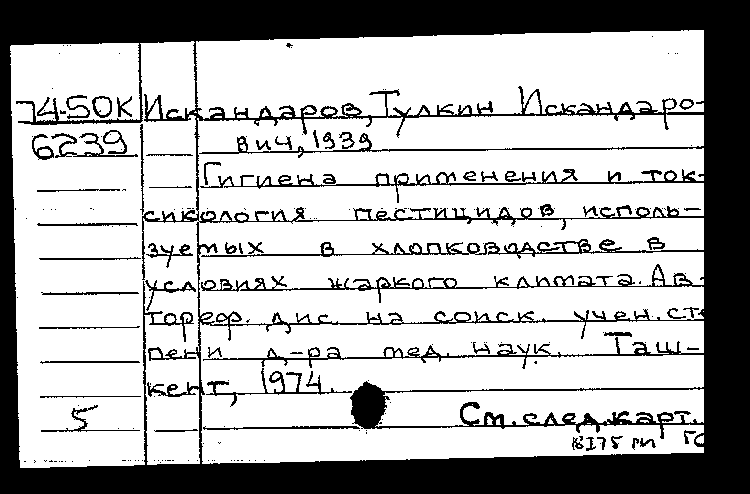 74-50К Искандаров, Тулкин Искандаро-
6239 вич, 1939
Гигиена применения и ток-
сикология пестицидов, исполь-
зуемых в хлопководстве в
условиях жаркого климата. Ав-
тореф. дис. на соиск. учен. сте
пени д-ра мед. наук. Таш-
кент, 1974.
5 См. след. карт.